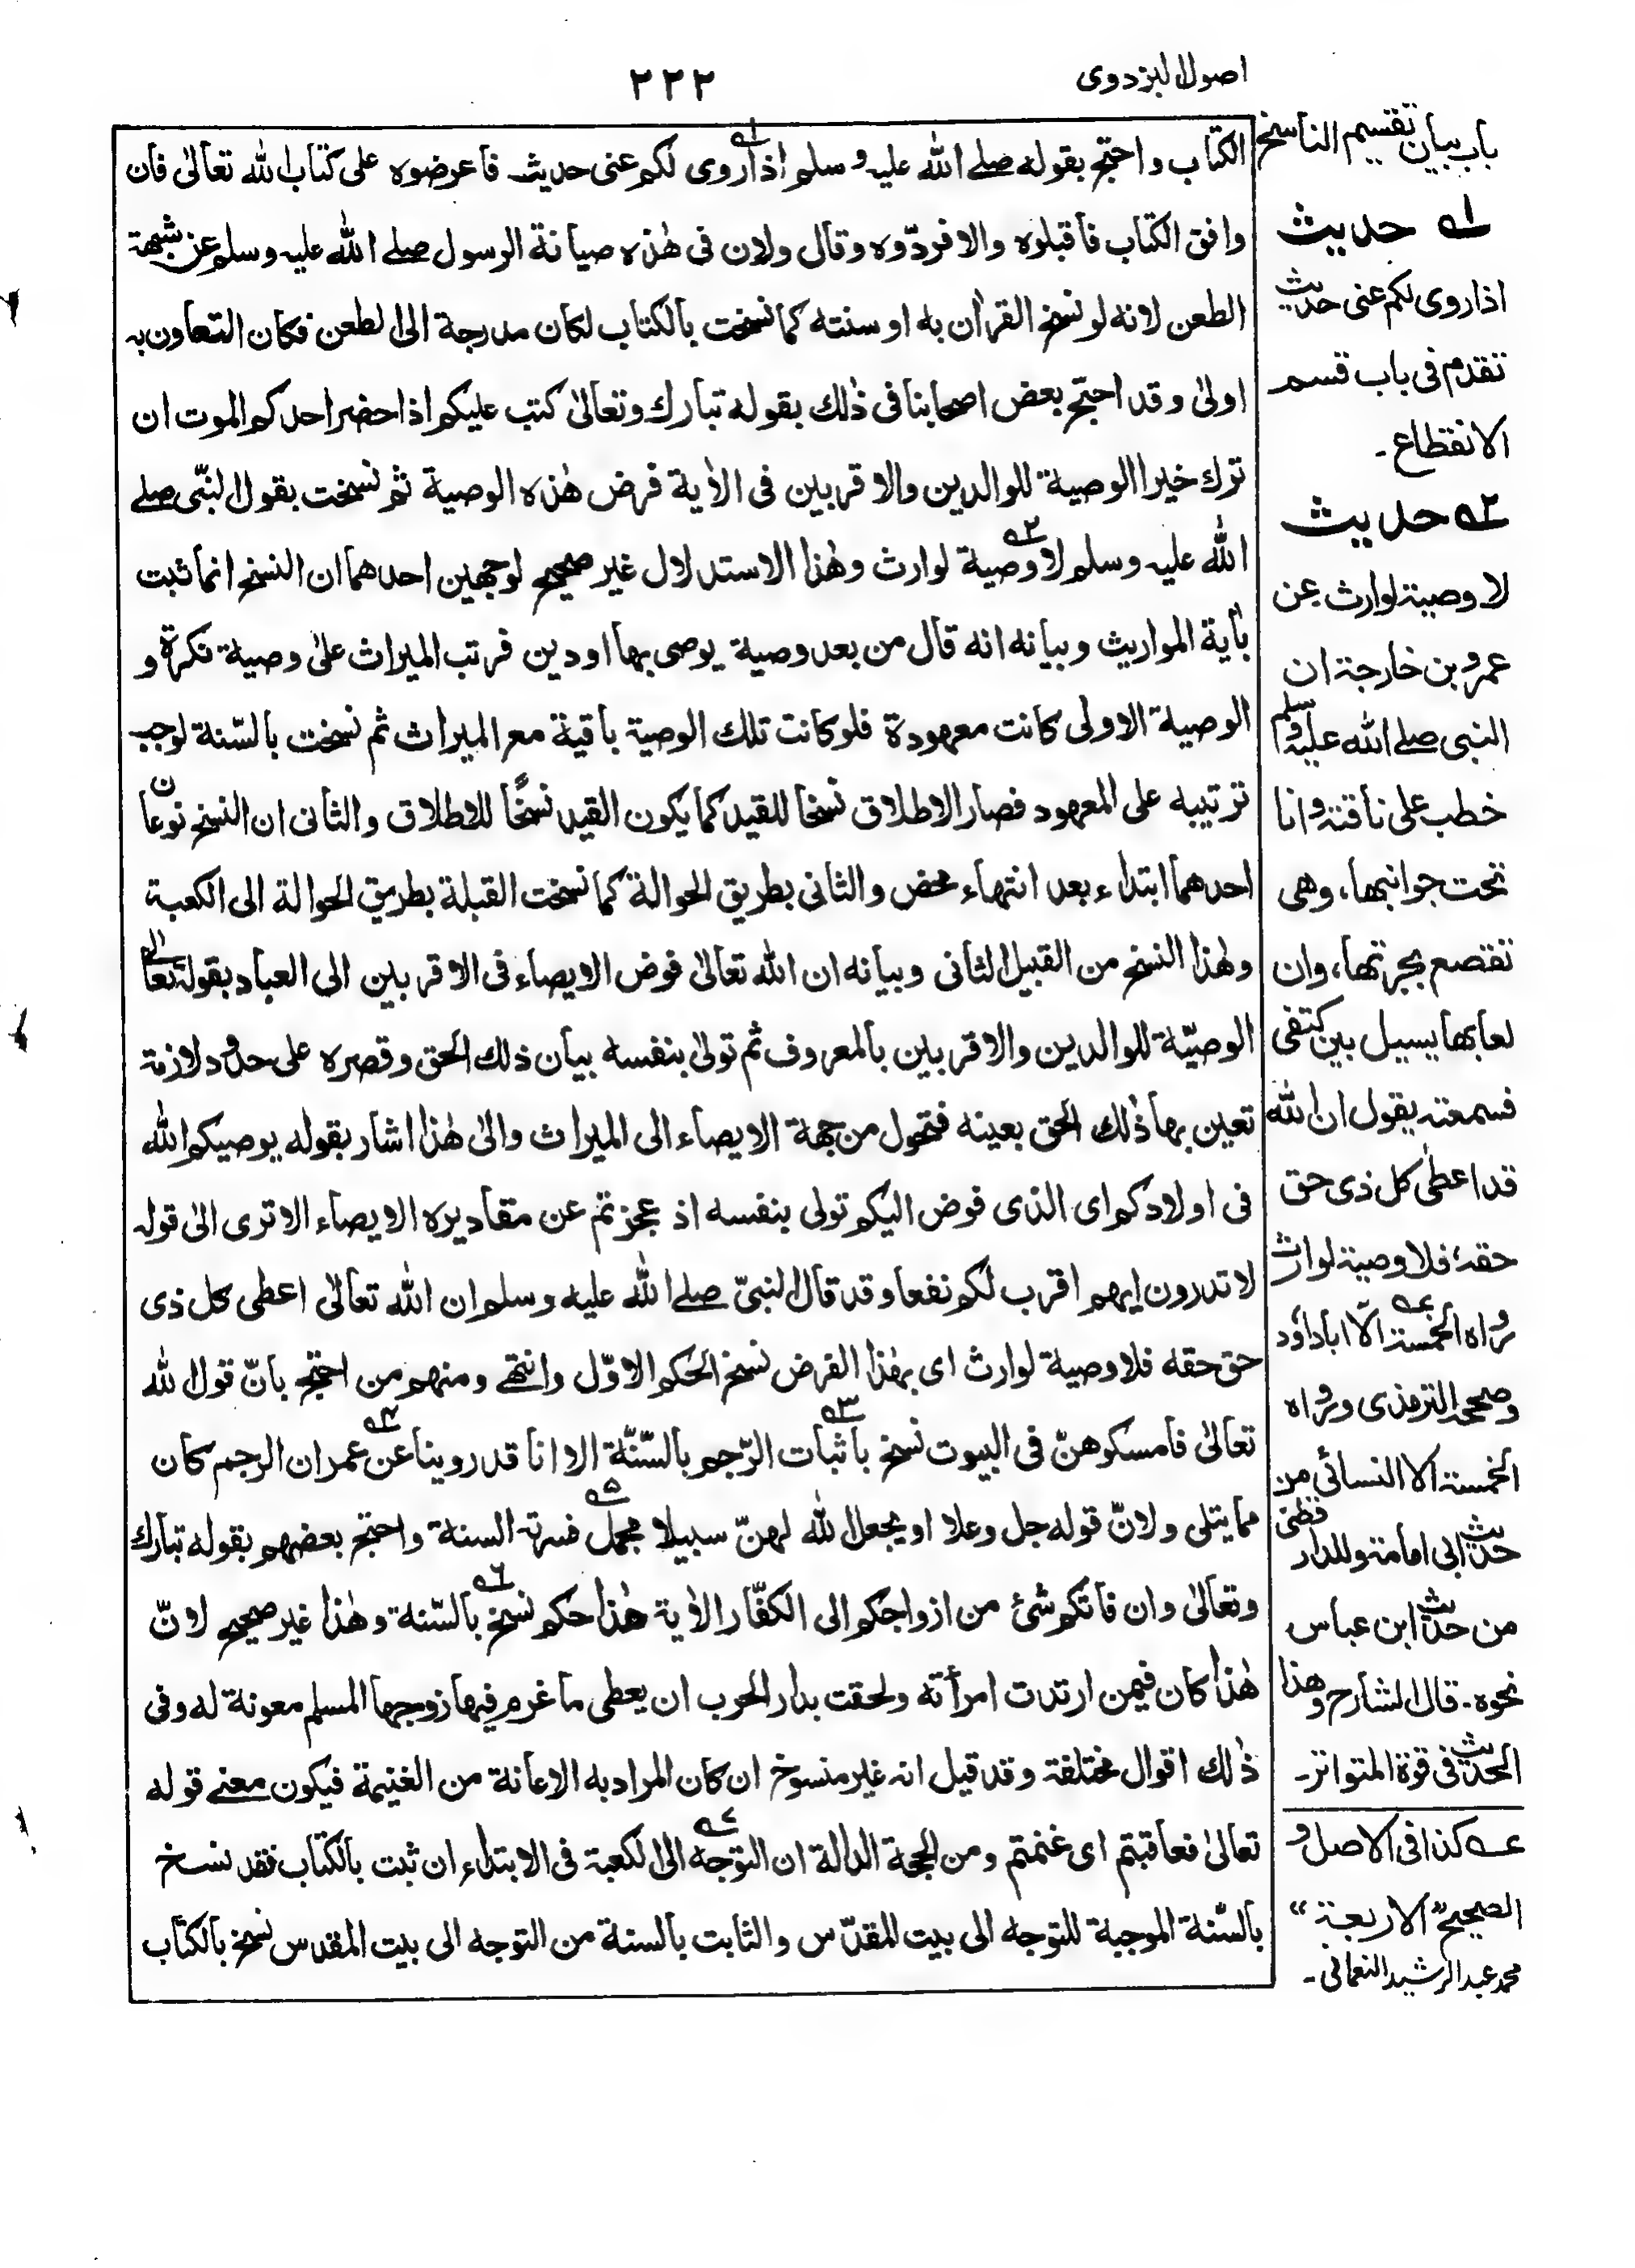 اصول البزدوی
۲۲۲
باب بیان تقسیم الناسخ
الکتاب واحتج بقوله صلے الله علیه وسلم اذا روی لکم عنی حدیث فاعرضوه علی کتاب الله تعالیٰ فان
وافق الکتاب فاقبلوه والا فردّوه وقال ولان فی هٰذه صیانة الرسول صلے الله علیه وسلم عن شبهة
الطعن لانه لو نسخ القراٰن به او سنته کما نسخت بالکتاب لکان مدرجة الی الطعن فکان التعاون به
اولیٰ وقد احتج بعض اصحابنا فی ذٰلك بقوله تبارك وتعالیٰ کتب علیکم اذا حضر احدکم الموت ان
ترك خیرا الوصیة للوالدین والاقربین فی الاٰیة فرض هٰذه الوصیة ثم نسخت بقول النبّی صلے
الله علیه وسلم لا وصیة لوارث وهٰذا الاستدلال غیر صحیح لوجهین احدهما ان النسخ انما ثبت
بأیة المواریث وبیانه انه قال من بعد وصیة یوصی بها او دین فرتب المیراث علیٰ وصیة نکرة و
الوصیة الاولی کانت معهودة فلو کانت تلك الوصیة باقیة مع المیراث ثم نسخت بالسّنة لوجب
ترتیبه علی المعهود فصار الاطلاق نسخا للقید کما یکون القید نسخًا للاطلاق والثانی ان النسخ نوعان
احدهما ابتداء بعد انتهاء محض والثانی بطریق الحوالة کما نسخت القبلة بطریق الحوالة الی الکعبة
وهٰذا النسخ من القبیل الثانی وبیانه ان الله تعالیٰ فوض الایصاء فی الاقربین الی العباد بقوله تعالیٰ
الوصیّة للوالدین والاقربین بالمعروف ثم تولیٰ بنفسه بیان ذلك الحق وقصره علی حدود لازمة
تعین بها ذٰلك الحق بعینه فتحول من جهة الایصاء الی المیراث والیٰ هٰذا اشار بقوله یوصیکم الله
فی اولادکم ای الذی فوض الیکم تولی بنفسه اذ عجزتم عن مقادیره الایصاء الا تری الیٰ قوله
لا تدرون ایهم اقرب لکم نفعا وقد قال النبیّ صلے الله علیه وسلم ان الله تعالیٰ اعطی کل ذی
حق حقه فلا وصیة لوارث ای بهٰذا الفرض نسخ الحکم الاوّل وانتهے ومنهم من احتج بانّ قول الله
تعالیٰ فامسکوهنّ فی البیوت نسخ باثبات الرّجم بالسّنّة الا انا قد روینا عن عمر ان الرجم کان
مما یتلی ولانّ قوله جل وعلا او یجعل الله لهنّ سبیلا مجمل فسرته السنة واحتج بعضهم بقوله تبارك
وتعالیٰ وان فاتکم شئ من ازواجکم الی الکفّار الاٰیة هٰذا حکم نسخ بالسّنة وهٰذا غیر صحیح لانّ
هٰذا کان فیمن ارتدت امرأته ولحقت بدار الحرب ان یعطی ما غرم فیها زوجها المسلم معونة له وفی
ذٰلك اقوال مختلفة وقد قیل انه غیر منسوخ ان کان المراد به الاعانة من الغنیمة فیکون معنے قوله
تعالیٰ فعاقبتم ای غنمتم ومن الحجة الدالة ان التوجه الی الکعبة فی الابتداء ان ثبت بالکتاب فقد نسخ
بالسّنة الموجبة للتوجه الی بیت المقدّس والثابت بالسنة من التوجه الی بیت المقدس نسخ بالکتاب
۱ه حدیث
اذا روی لکم عنی حدیث
تقدم فی باب قسم
الانقطاع۔
۲ه حدیث
لا وصیة لوارث عن
عمرو بن خارجة ان
النبی صلے الله علیه وسلم
خطب علی ناقته وانا
تحت جرانها، وهی
تقصع بجرتها، وان
لعابها یسیل بین کتفی
فسمعته یقول ان الله
قد اعطیٰ کل ذی حق
حقه، فلا وصیة لوارث
رواه الخمسة الّا ابا داؤد
وصححه الترمذی ورواه
الخمسة الا النسائی من
حدیث ابی امامة وللدارقطنی
من حدیث ابن عباس
نحوه۔ قال الشارح وهذا
الحدیث فی قوة المتواتر۔
عه کذا فی الاصل و
الصحیح "الاربعة"
محمد عبد الرشید النعمانی۔